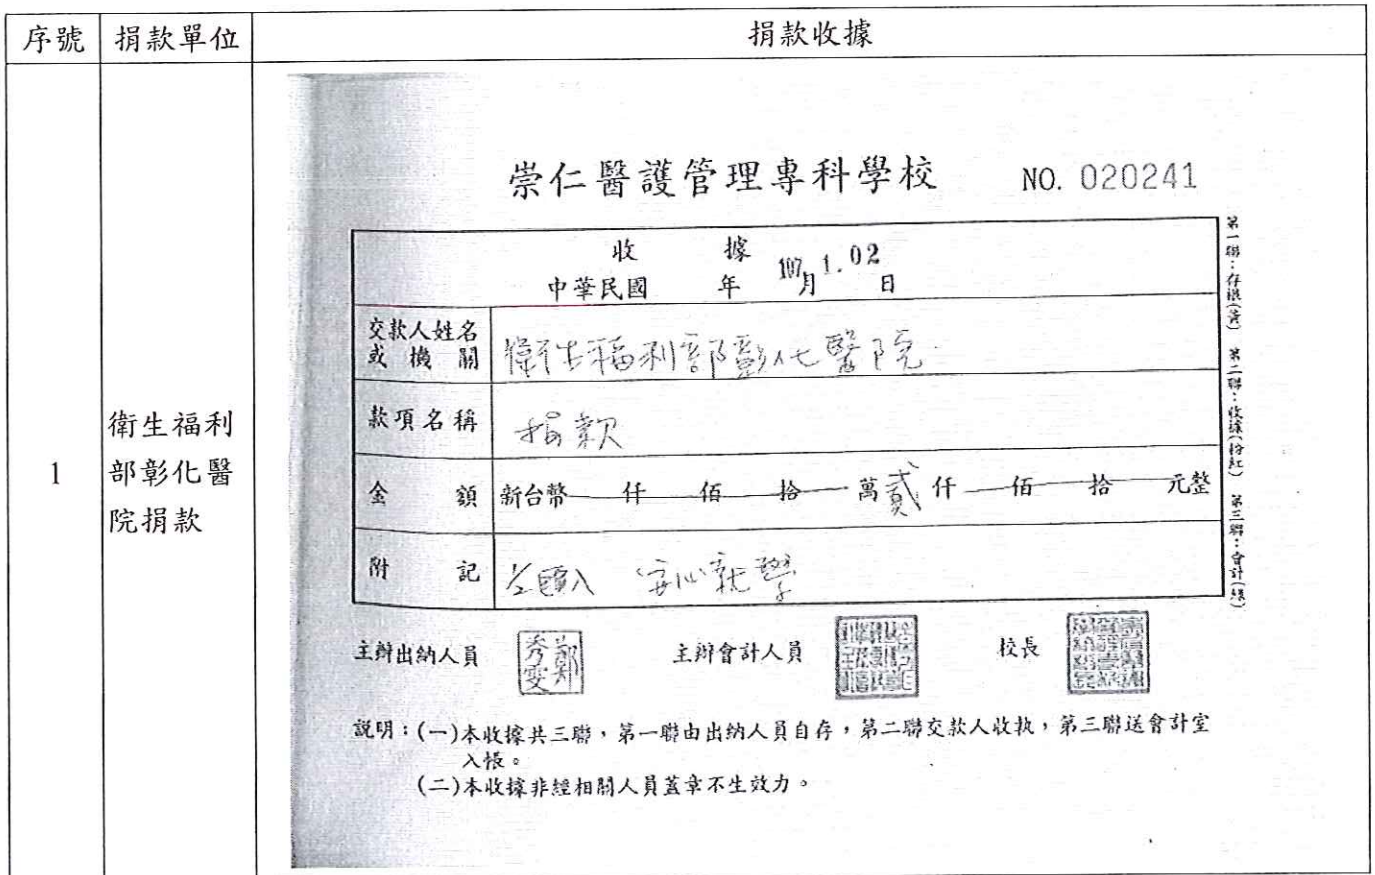 序號 捐款單位 捐款收據
1
衛生福利
部彰化醫
院捐款
崇仁醫護管理專科學校 NO. 020241
收 據
中華民國 年 107 月 1.02 日
交款人姓名
或機關
衛生福利部彰化醫院
款項名稱 捐款
金 額 新台幣 仟 佰 拾 萬貳仟 佰 拾 元整
附 記 安心就學
主辦出納人員 鄭秀雯 主辦會計人員 校長
說明:(一)本收據共三聯,第一聯由出納人員自存,第二聯交款人收執,第三聯送會計室
入帳。
(二)本收據非經相關人員蓋章不生效力。
第一聯:存根(黃) 第二聯:收據(粉紅) 第三聯:會計(綠)